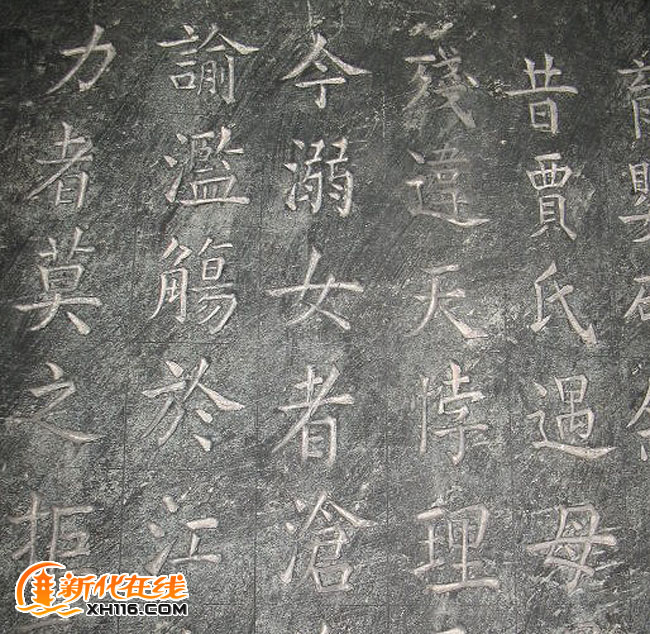 昔賈氏遇母
殘違天悖理
今溺女者滄
諭濫觴於江
力者莫之拒
新化在线
XH116.COM